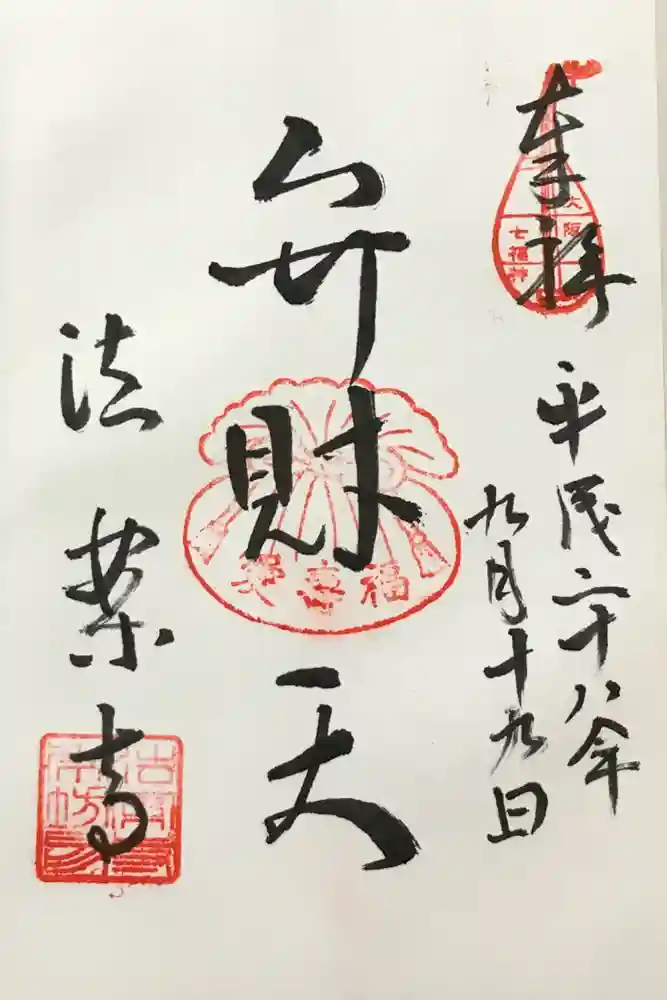 奉拝
大阪
七福神
平成二十八年
九月十九日
弁財天
福寿
法案寺